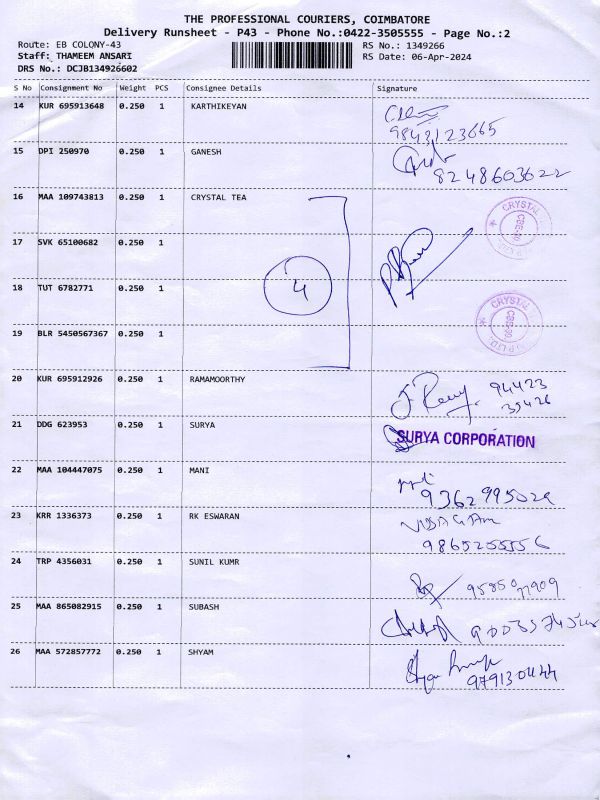 THE PROFESSIONAL COURIERS, COIMBATORE
Delivery Runsheet - P43 - Phone No.:0422-3505555 - Page No.:2
Route: EB COLONY-43 RS No.: 1349266
Staff: THAMEEM ANSARI RS Date: 06-Apr-2024
DRS No.: DCJB134926602
S No Consignment No Weight PCS Consignee Details Signature
14 KUR 695913648 0.250 1 KARTHIKEYAN
9843123665
15 DPI 250970 0.250 1 GANESH
8248603622
16 MAA 109743813 0.250 1 CRYSTAL TEA
CRYSTAL
17 SVK 65100682 0.250 1
18 TUT 6782771 0.250 1
4
CRYSTAL
19 BLR 5450567367 0.250 1
20 KUR 695912926 0.250 1 RAMAMOORTHY
94423
39426
21 DDG 623953 0.250 1 SURYA
SURYA CORPORATION
22 MAA 104447075 0.250 1 MANI
9362995029
23 KRR 1336373 0.250 1 RK ESWARAN
9865255556
24 TRP 4356031 0.250 1 SUNIL KUMR
25 MAA 865082915 0.250 1 SUBASH
26 MAA 572857772 0.250 1 SHYAM